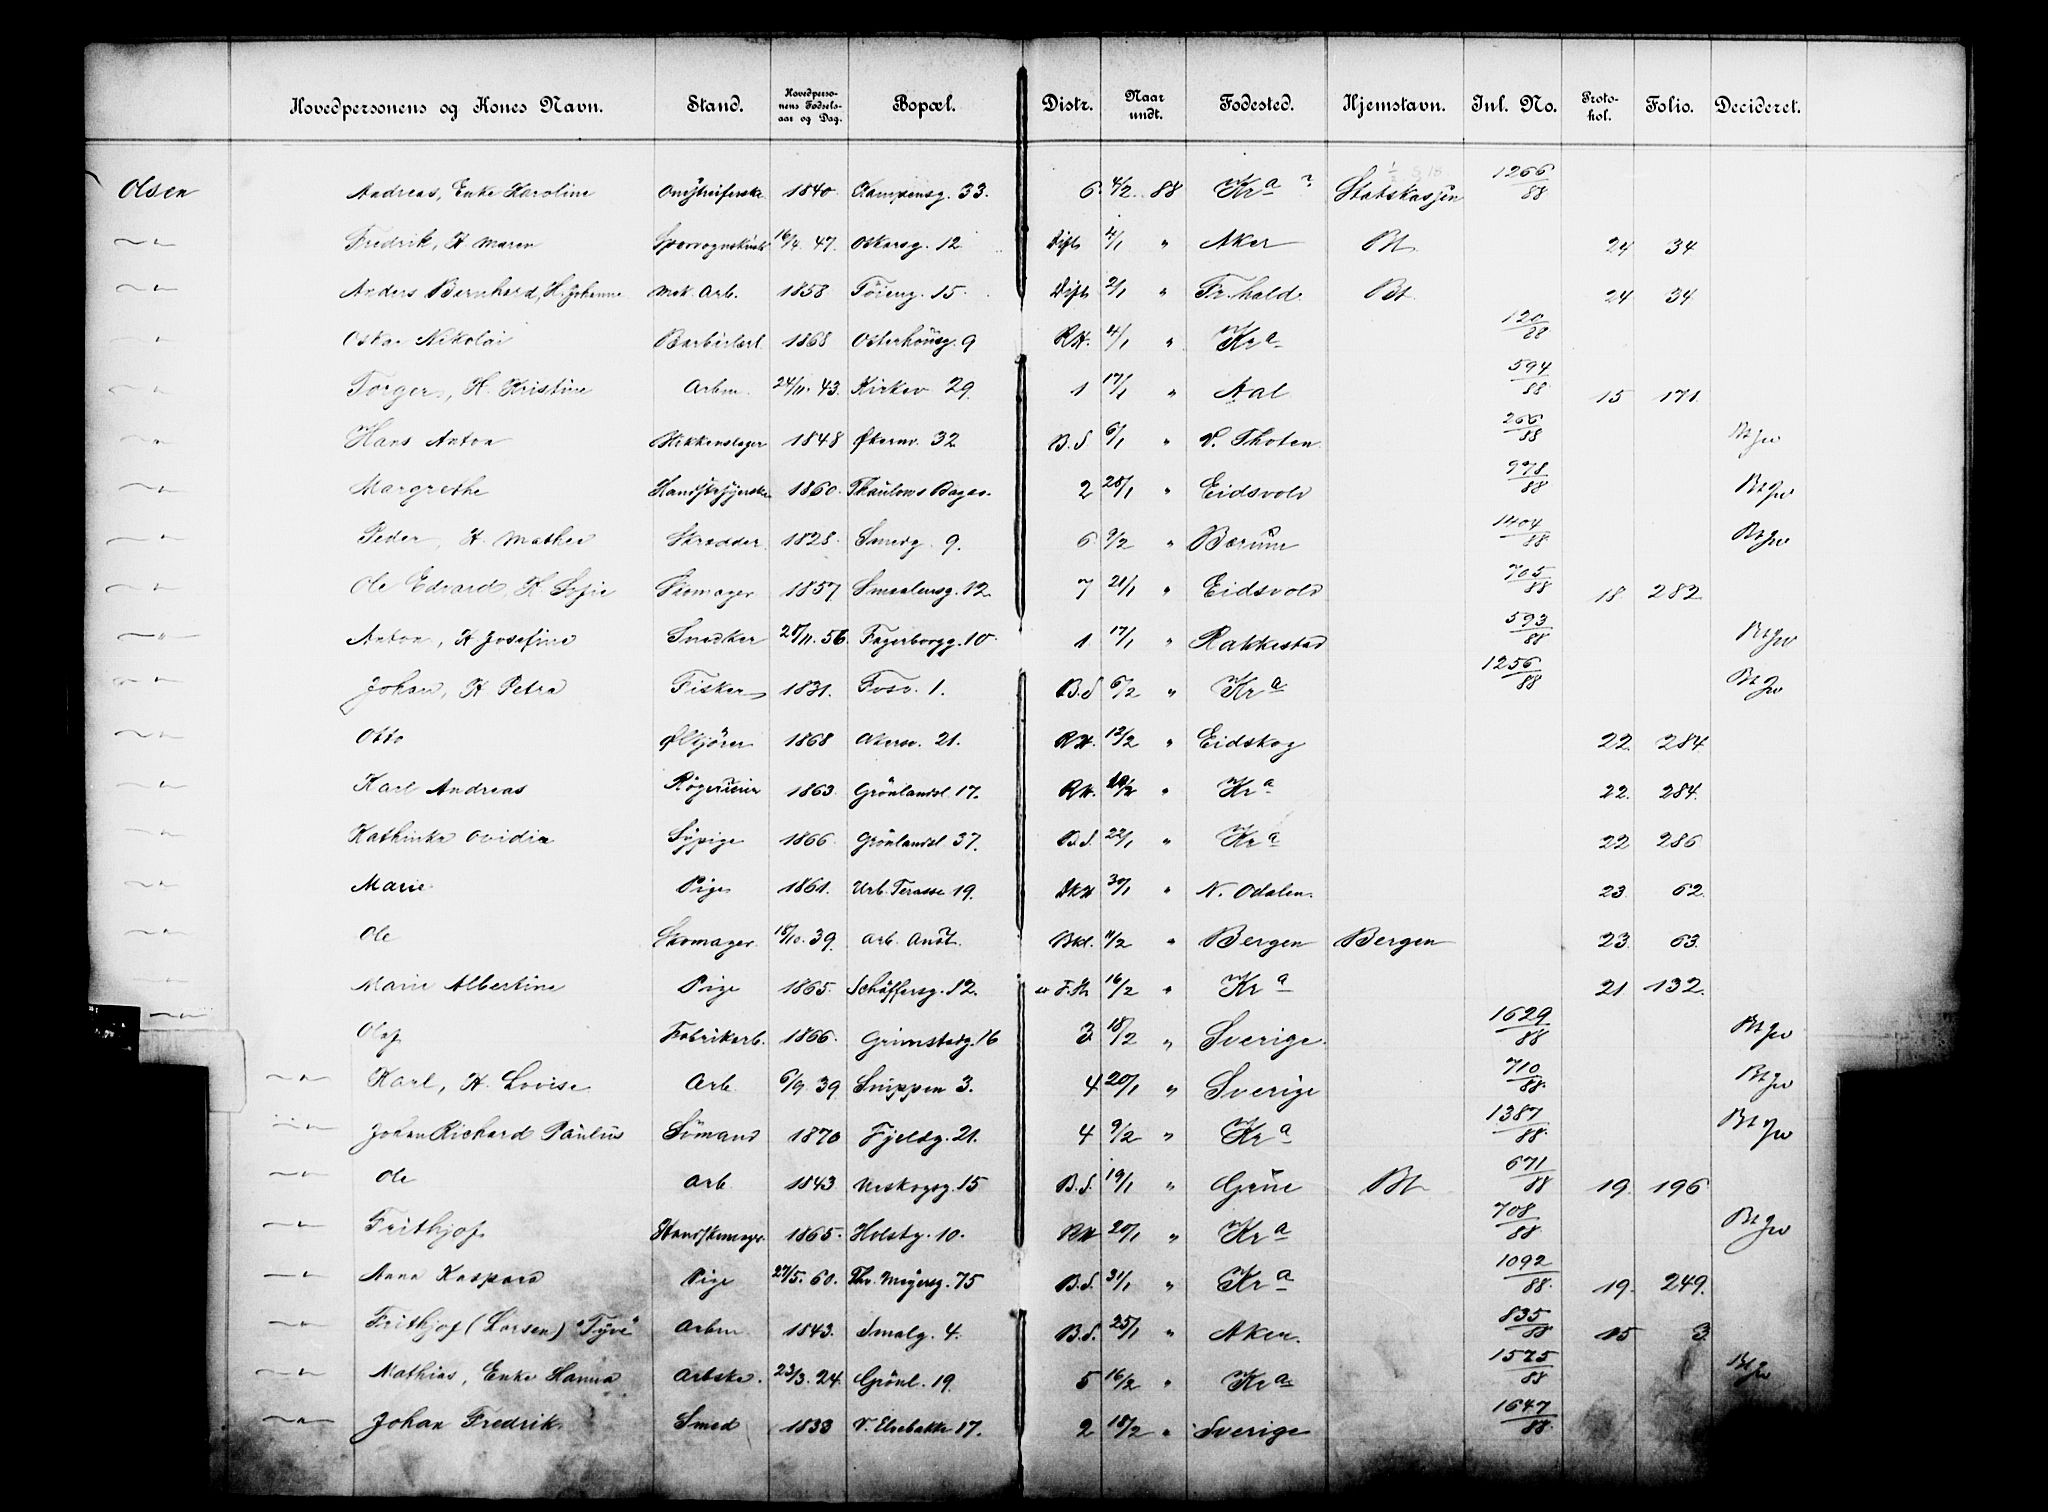 Hovedpersonens og Kones Navn. Stand. Hovedpersonens Fødselsaar og Dag. Bopæl. Distr. Naar undt. Fødested. Hjemstavn. Inl. No. Protokol. Folio. Decideret.
Olsen Andreas, Enke Karoline 1840. Kampensg. 33. 6. 4/2 88 Kra ? Statskassen 1266/88
-"- Fredrik, H. Maren 16/4. 47. Oskarsg. 12 4/1 " Aker Bt. 24 34
-"- Anders Bernhard, H. Johanne Mek. Arb. 1858. Töieng. 15. 2/1 " Fr.hald. Bt. 24 34
-"- Oskar Nikolai Barberlærl. 1868 Osterhausg. 9 RH. 4/1 " Kra 120/88
-"- Torger, H. Kristine Arbm. 24/11. 43. Kirkev 29. 1 17/1 " Aal 594/88 15 171.
-"- Hans Anton Blikkenslager 1848 Økernv. 32 B.S 6/1 " V. Thoten. 266/88 Bt Jw
-"- Margrethe 1860. Thaulows Bager. 2 28/1 " Eidsvold 978/88 Bt Jw
-"- Peder, H. Mathea Skrædder. 1828. Smedg. 9. 6. 9/2 " Bærum 1404/88 Bt Jw
-"- Ole Edvard, H. Sofie Skomager 1857 Smaalensg. 12. 7 21/1 " Eidsvold 705/88 18. 282.
-"- Anton, H Josefine Snedker 28/11. 56. Fagerborgg. 10. 1. 17/1 " Rakkestad 593/88 Bt Jw
-"- Johan, H Petra Fisker 1831. Fosv. 1. B.S 6/2 " Kra 1256/88 Bt Jw
-"- Otto Ølkjörer 1868 Akersv. 21. RH. 13/2 " Eidskog 22. 284
-"- Karl Andreas 1863. Grönlandsl. 17. RH. " Kra 22. 284.
-"- Kathinka Ovidia Sypige 1866. Grönlandsl 37. B.S. 22/1 " Kra 22 286
-"- Marie Pige 1861. Arb. Terasse 19. 30/1 " N. Odalen. 23. 62.
-"- Ole Skomager. 18/10. 39. Arb. Anst. 11/2 " Bergen Bergen 23. 63.
-"- Marie Albertine Pige 1865. Schäffersg. 12. 16/2 " Kra 21 132.
-"- Olaf Fabrikarb. 1866. Grimstadg. 16 3 18/2 " Sverige. 1629/88 Bt Jw
-"- Karl, H. Lovise Arb 6/9. 39 Snippen 3. 4 20/1 " Sverige 710/88. Bt Jw
-"- Johan Richard Paulus Sömand 1870 Fjeldg. 21. 4 9/2 " Kra 1387/88. Bt Jw
-"- Ole Arb. 1843. 15 B.S. 19/1 " Grue Bt. 671/88 19. 196
-"- Frithjof. Handskemager. 1865. Holstg. 10. RH 20/1 " Kra 708/88. Bt Jw
-"- Anna Kaspara Pige 27/5. 60. Thv. Meyersg. 75 B.S. 31/1 " Kra 1092/88. 19. 249.
-"- Frithjof (Larsen) "Tyve" Arbm 1843. Smalg. 4. B.S. 25/1 " Aker. 835/88 15 3
-"- Mathias, Enke Hanna Arbske. 23/3. 24. Grönl. 19. 5 16/2 " Kra 1575/88 Bt Jw
-"- Johan Fredrik Smed 1833 V. Elvebakke 17. 2 18/2 " Sverige 1647/88.